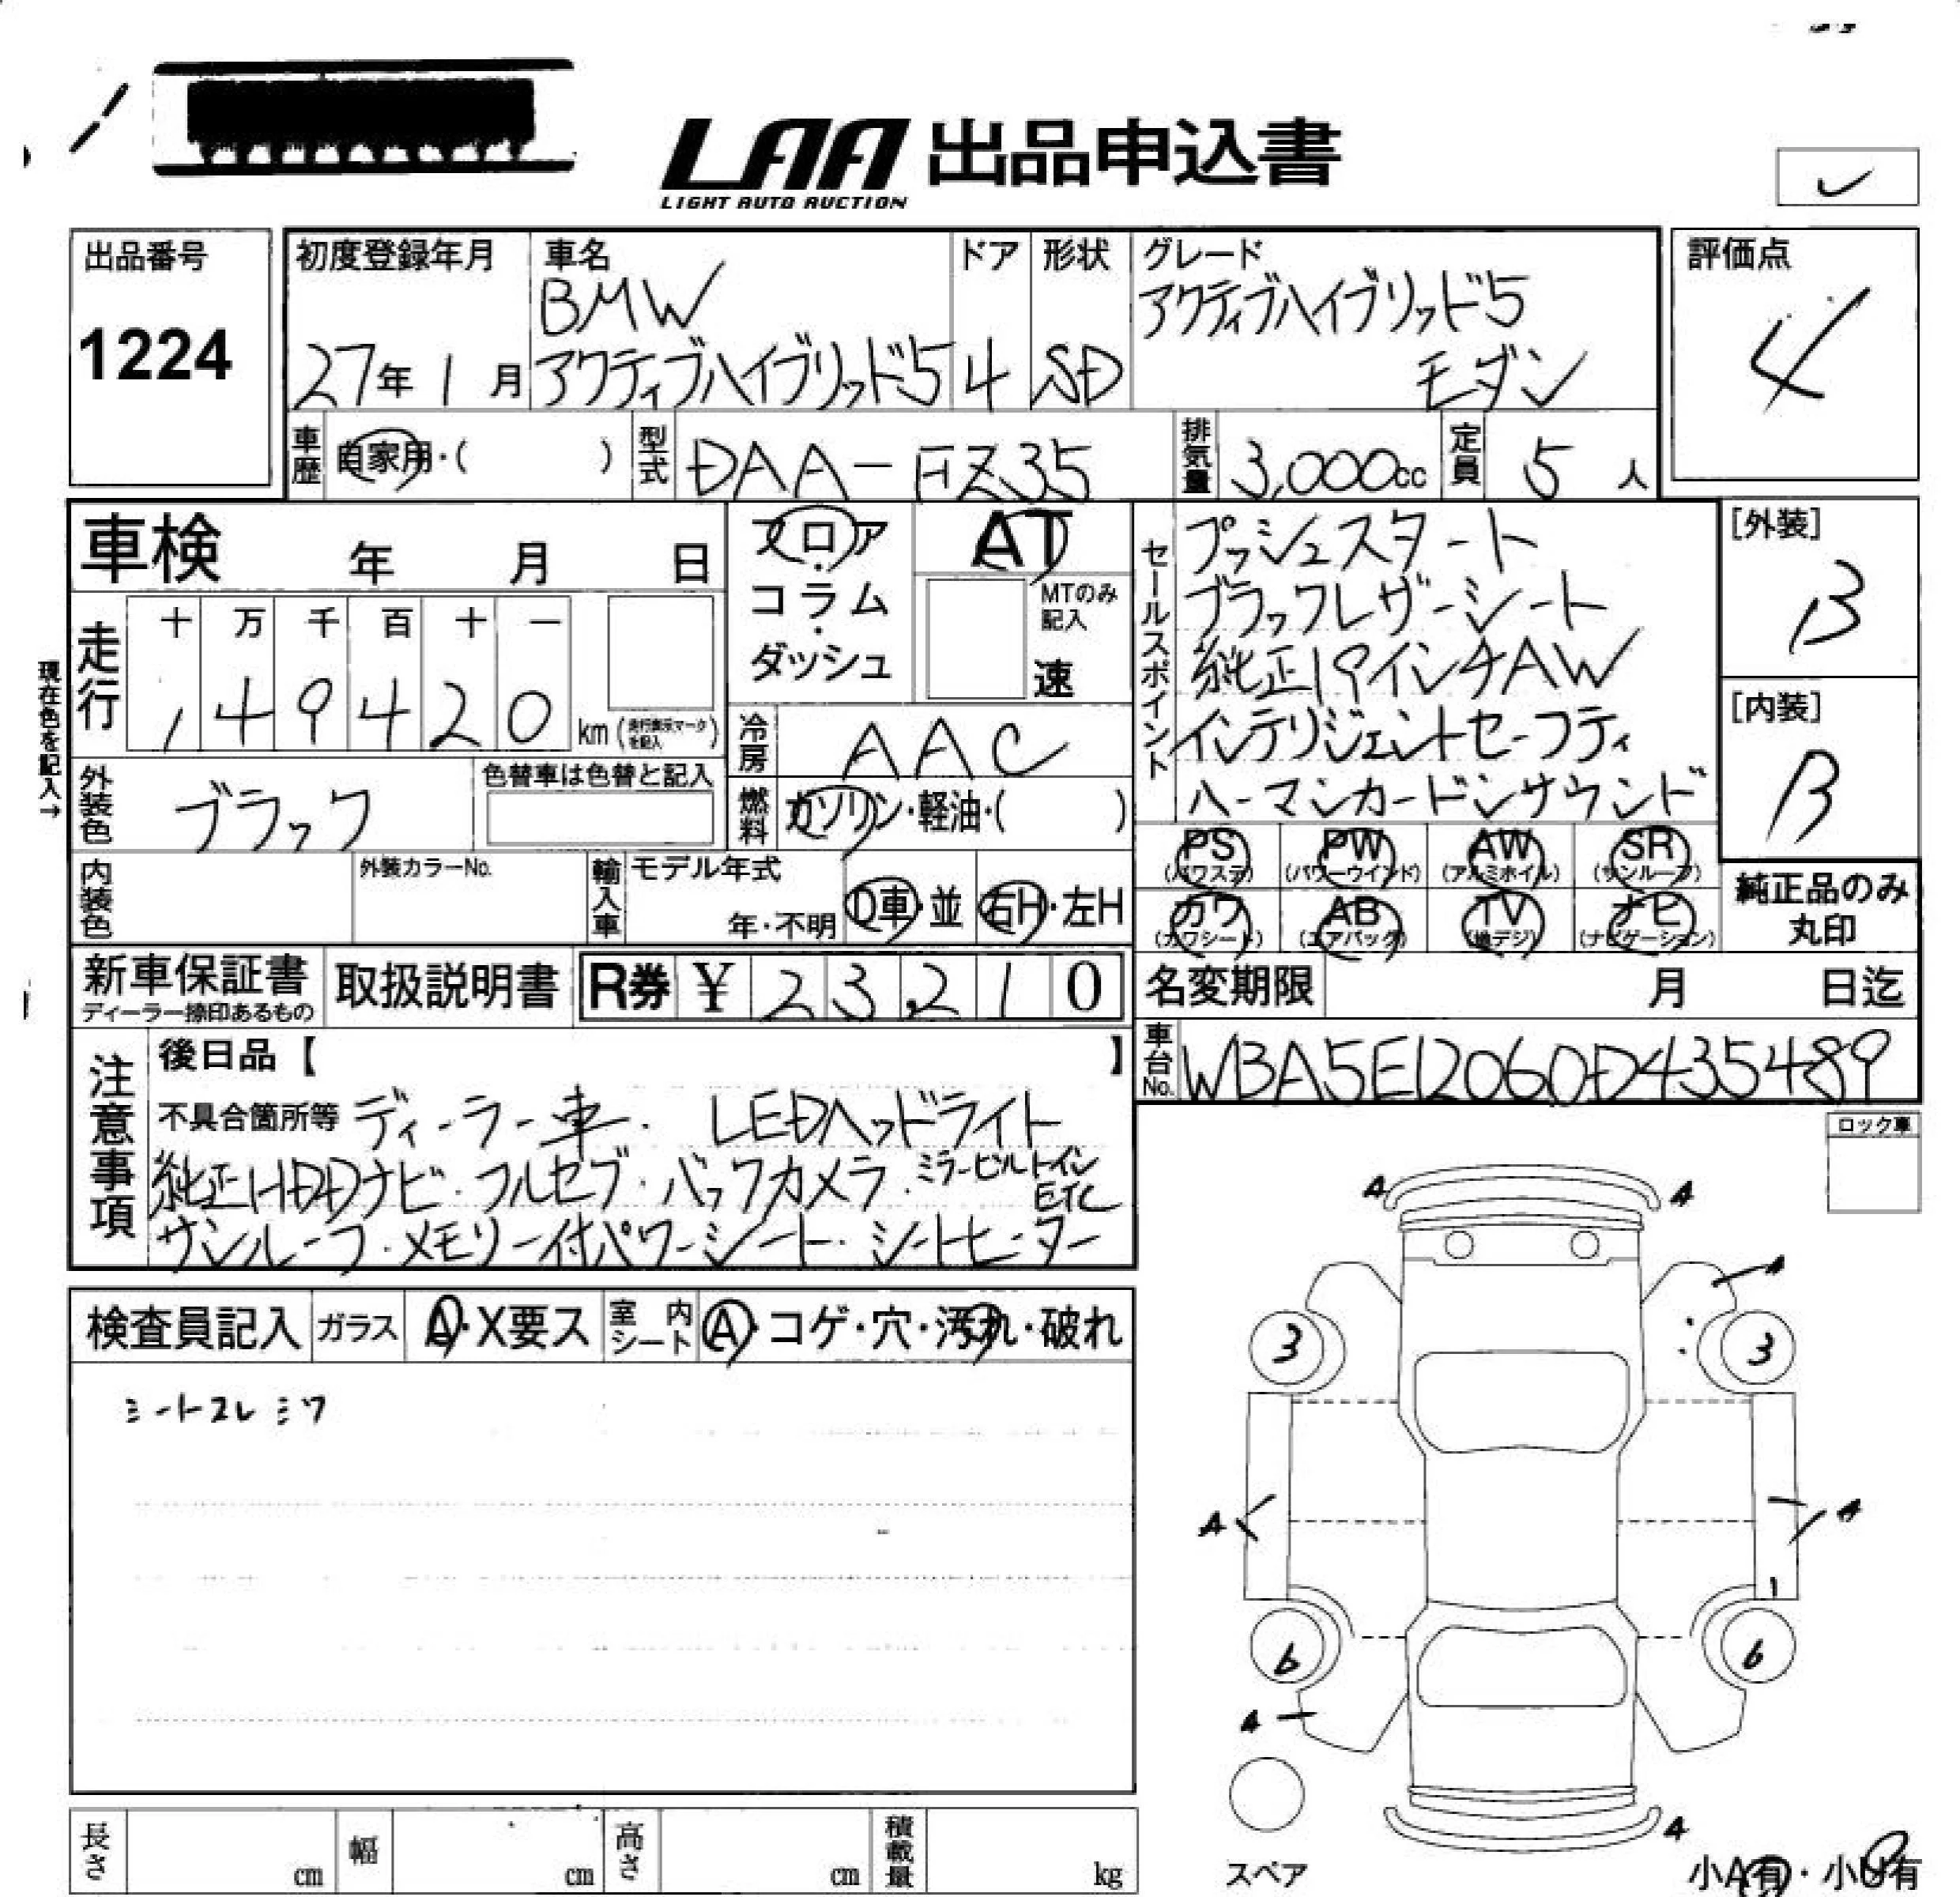 LAA 出品申込書
LIGHT AUTO AUCTION
出品番号
1224
初度登録年月
27年1月
車名
BMW
アクティブハイブリッド5
ドア
4
形状
SD
グレード
アクティブハイブリッド5
モダン
評価点
4
車歴 自家用・( )
型式 DAA-FZ35
排気量 3,000cc
定員 5人
車検 年 月 日
現在色を記入→
走行
十 万 千 百 十 一
, 4 9 4 2 0 km (走行表示マークを記入)
外装色 ブラック
色替車は色替と記入
内装色
外装カラーNo.
輸入車
モデル年式
年・不明
D車・並
右H・左H
フロア・コラム・ダッシュ
AT
MTのみ記入
速
冷房 AAC
燃料 ガソリン・軽油・( )
セールスポイント
プッシュスタート
ブラックレザーシート
純正19インチAW
インテリジェントセーフティ
ハーマンカードンサウンド
PS (パワステ) PW (パワーウインド) AW (アルミホイル) SR (サンルーフ)
カワ (カワシート) AB (エアバック) TV (地デジ) ナビ (ナビゲーション)
[外装]
B
[内装]
B
純正品のみ
丸印
新車保証書
ディーラー捺印あるもの
取扱説明書
R券 ¥ 23,210
名変期限 月 日迄
車台No. WBA5E12060D435489
注意事項
後日品【 】
不具合箇所等 ディーラー車. LEDヘッドライト
純正HDDナビ・フルセグ・バックカメラ・ミラービルトインETC
サンルーフ・メモリー付パワーシート・シートヒーター
検査員記入 ガラス A・X要ス 室内シート A・コゲ・穴・汚れ・破れ
シートスレ シワ
ロック車
A A
A
3 3
A A
1
6 6
A
A
スペア
小A有・小U有
長さ cm 幅 cm 高さ cm 積載量 kg